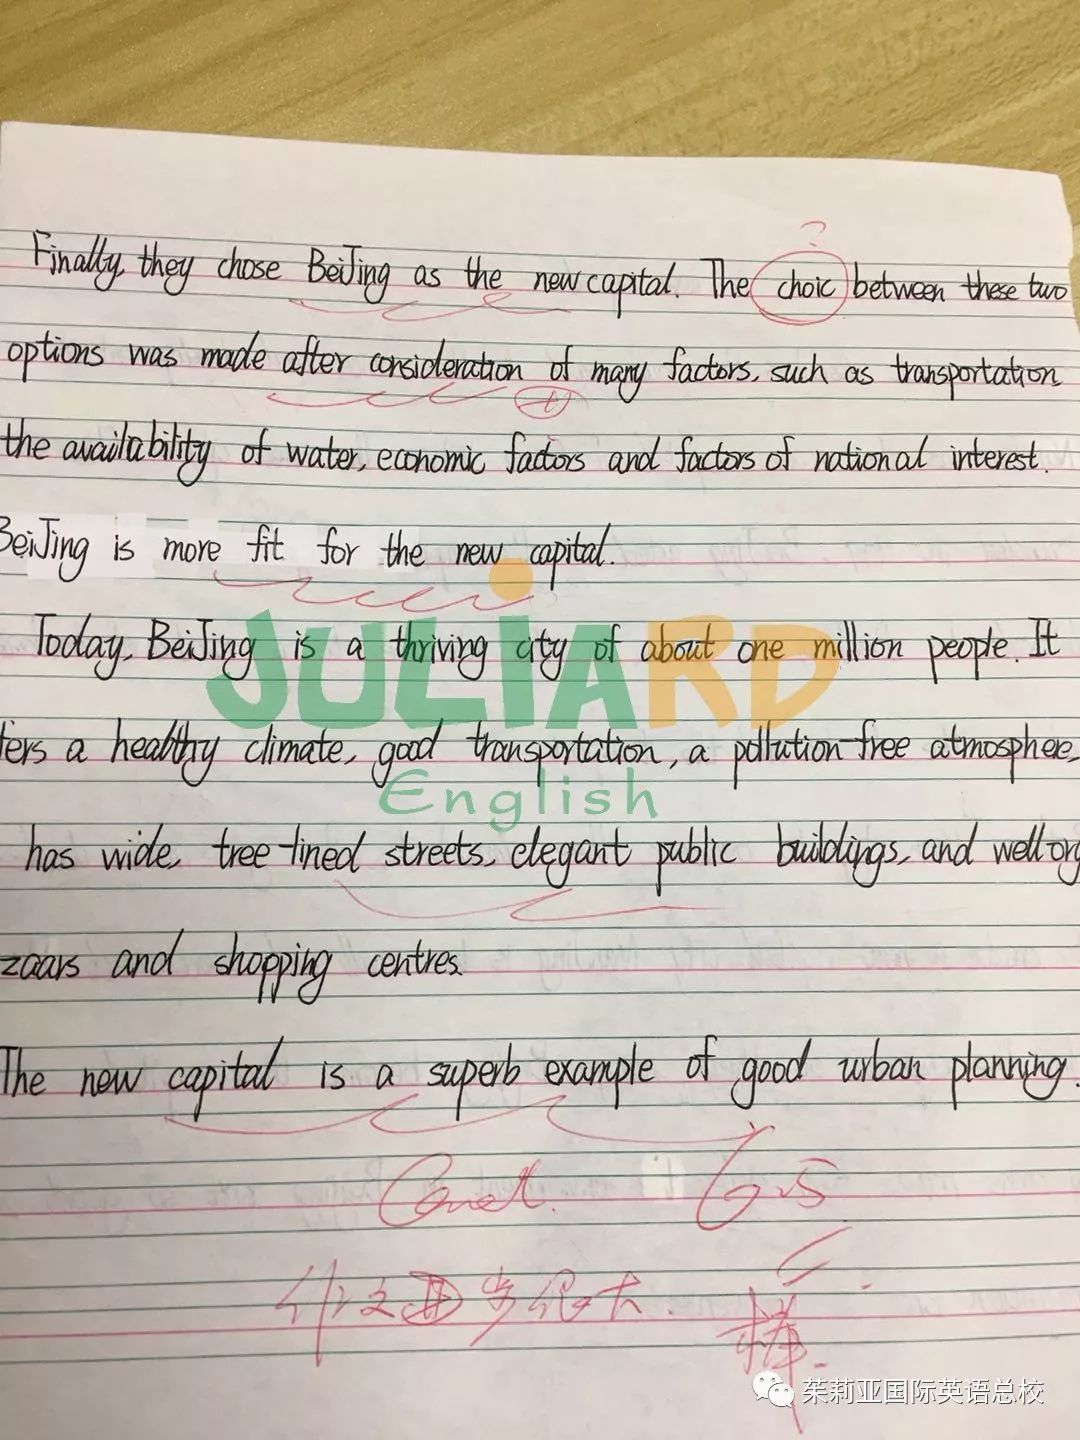 ?
Finally, they chose BeiJing as the new capital. The choic between these two
options was made after consideration of many factors, such as transportation
the availability of water, economic factors and factors of national interest.
BeiJing is more fit for the new capital.
JULIARD
Today, BeiJing is a thriving city of about one million people. It
fers a healthy climate, good transportation, a pollution-free atmosphere,
English
has wide, tree-lined streets, elegant public buildings, and well org
zaars and shopping centres.
The new capital is a superb example of good urban planning.
Good. 6.5
作文进步很大.
棒.
茱莉亚国际英语总校